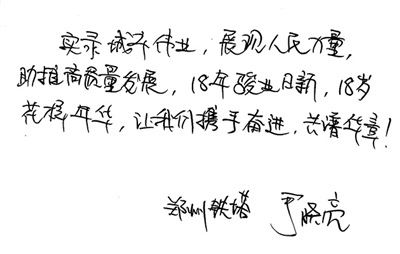 实录城乡伟业，展现人民力量，
助推高质量发展，18年骏业日新，18岁
花样年华，让我们携手奋进，共谱华章！
郑州铁塔 严晓亮